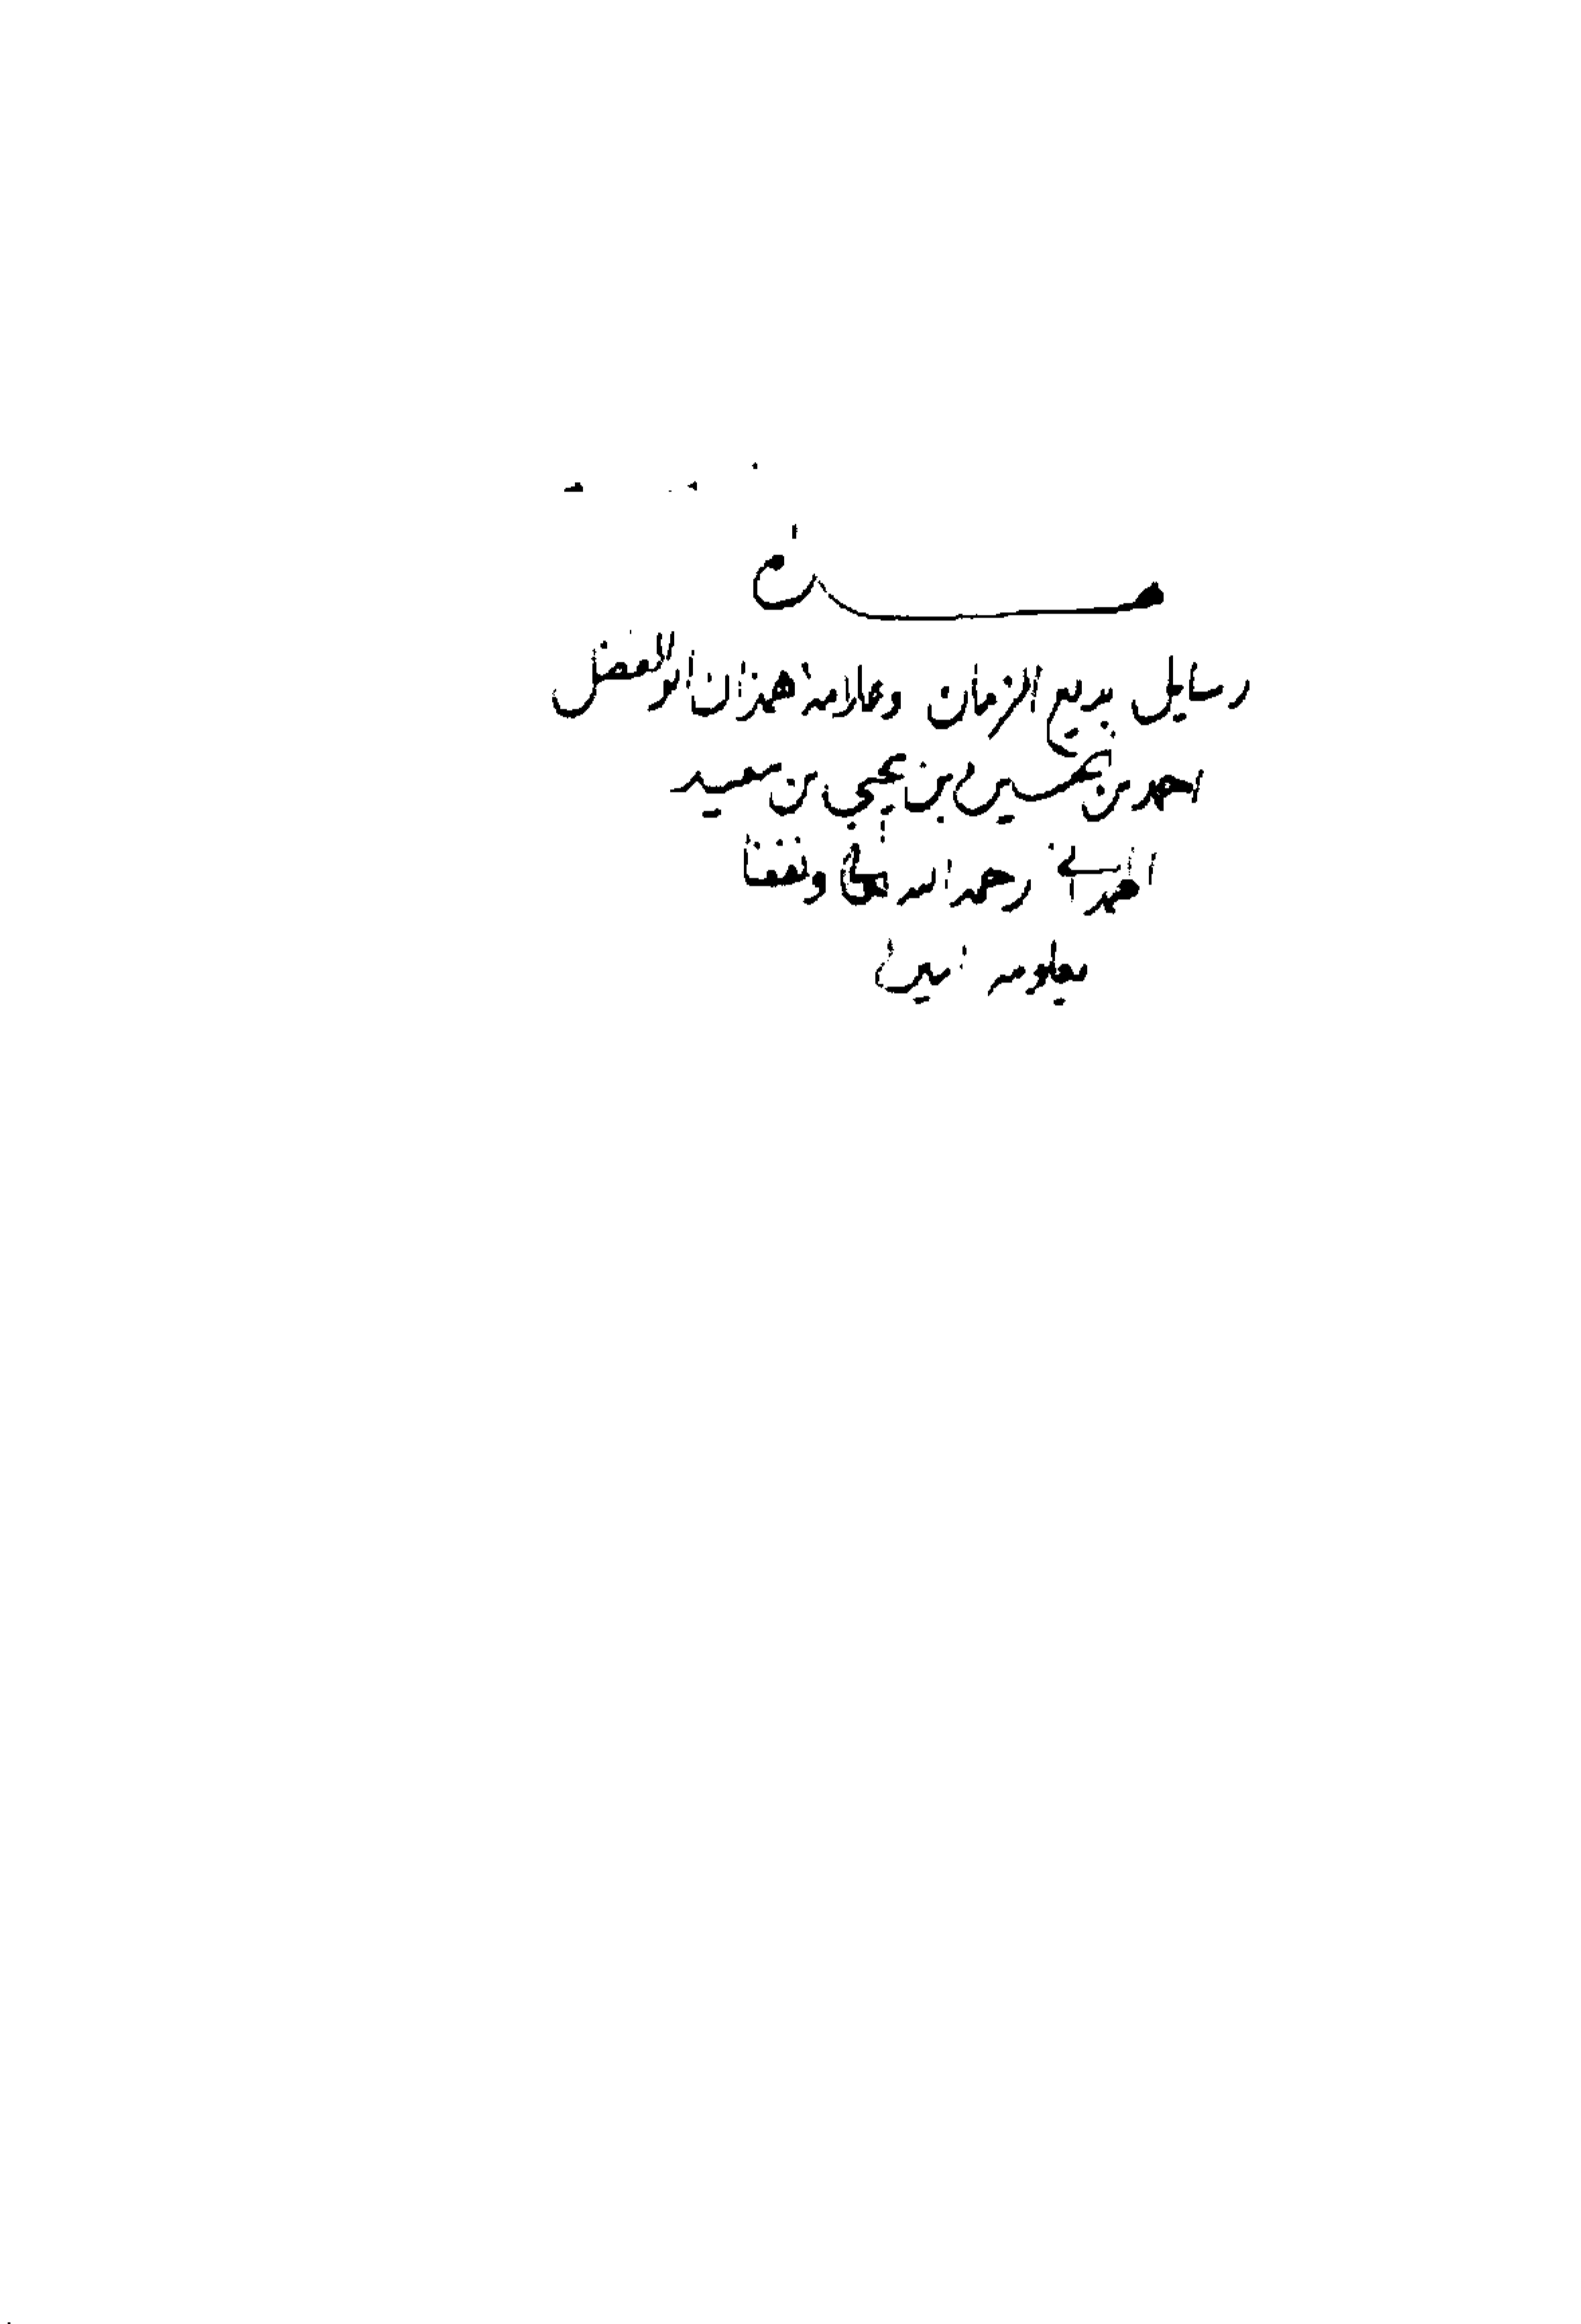 هـــــــــذه
رسايل بديع الزمان وعلامة همذان أبو الفضل
احمد بن الحسين بن يحيى بن سعيد
الهمداني رحمه الله تعالى ونفعنا
بعلومه امين